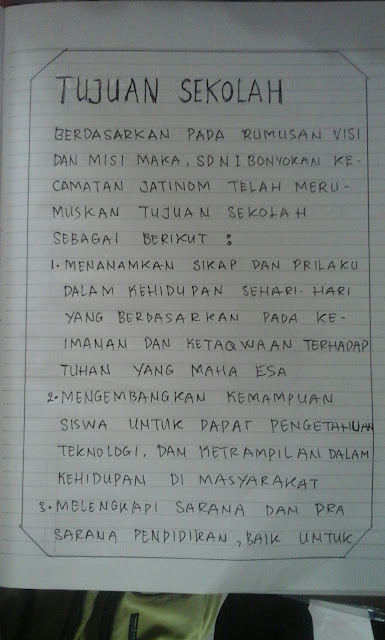 TUJUAN SEKOLAH
BERDASARKAN PADA RUMUSAN VISI
DAN MISI MAKA, SDN I BONYOKAN KE-
CAMATAN JATINOM TELAH MERU-
MUSKAN TUJUAN SEKOLAH
SEBAGAI BERIKUT :
1. MENANAMKAN SIKAP DAN PRILAKU
DALAM KEHIDUPAN SEHARI-HARI
YANG BERDASARKAN PADA KE-
IMANAN DAN KETAQWAAN TERHADAP
TUHAN YANG MAHA ESA
2. MENGEMBANGKAN KEMAMPUAN
SISWA UNTUK DAPAT PENGETAHUAN
TEKNOLOGI, DAN KETRAMPILAN DALAM
KEHIDUPAN DI MASYARAKAT
3. MELENGKAPI SARANA DAN PRA
SARANA PENDIDIKAN, BAIK UNTUK